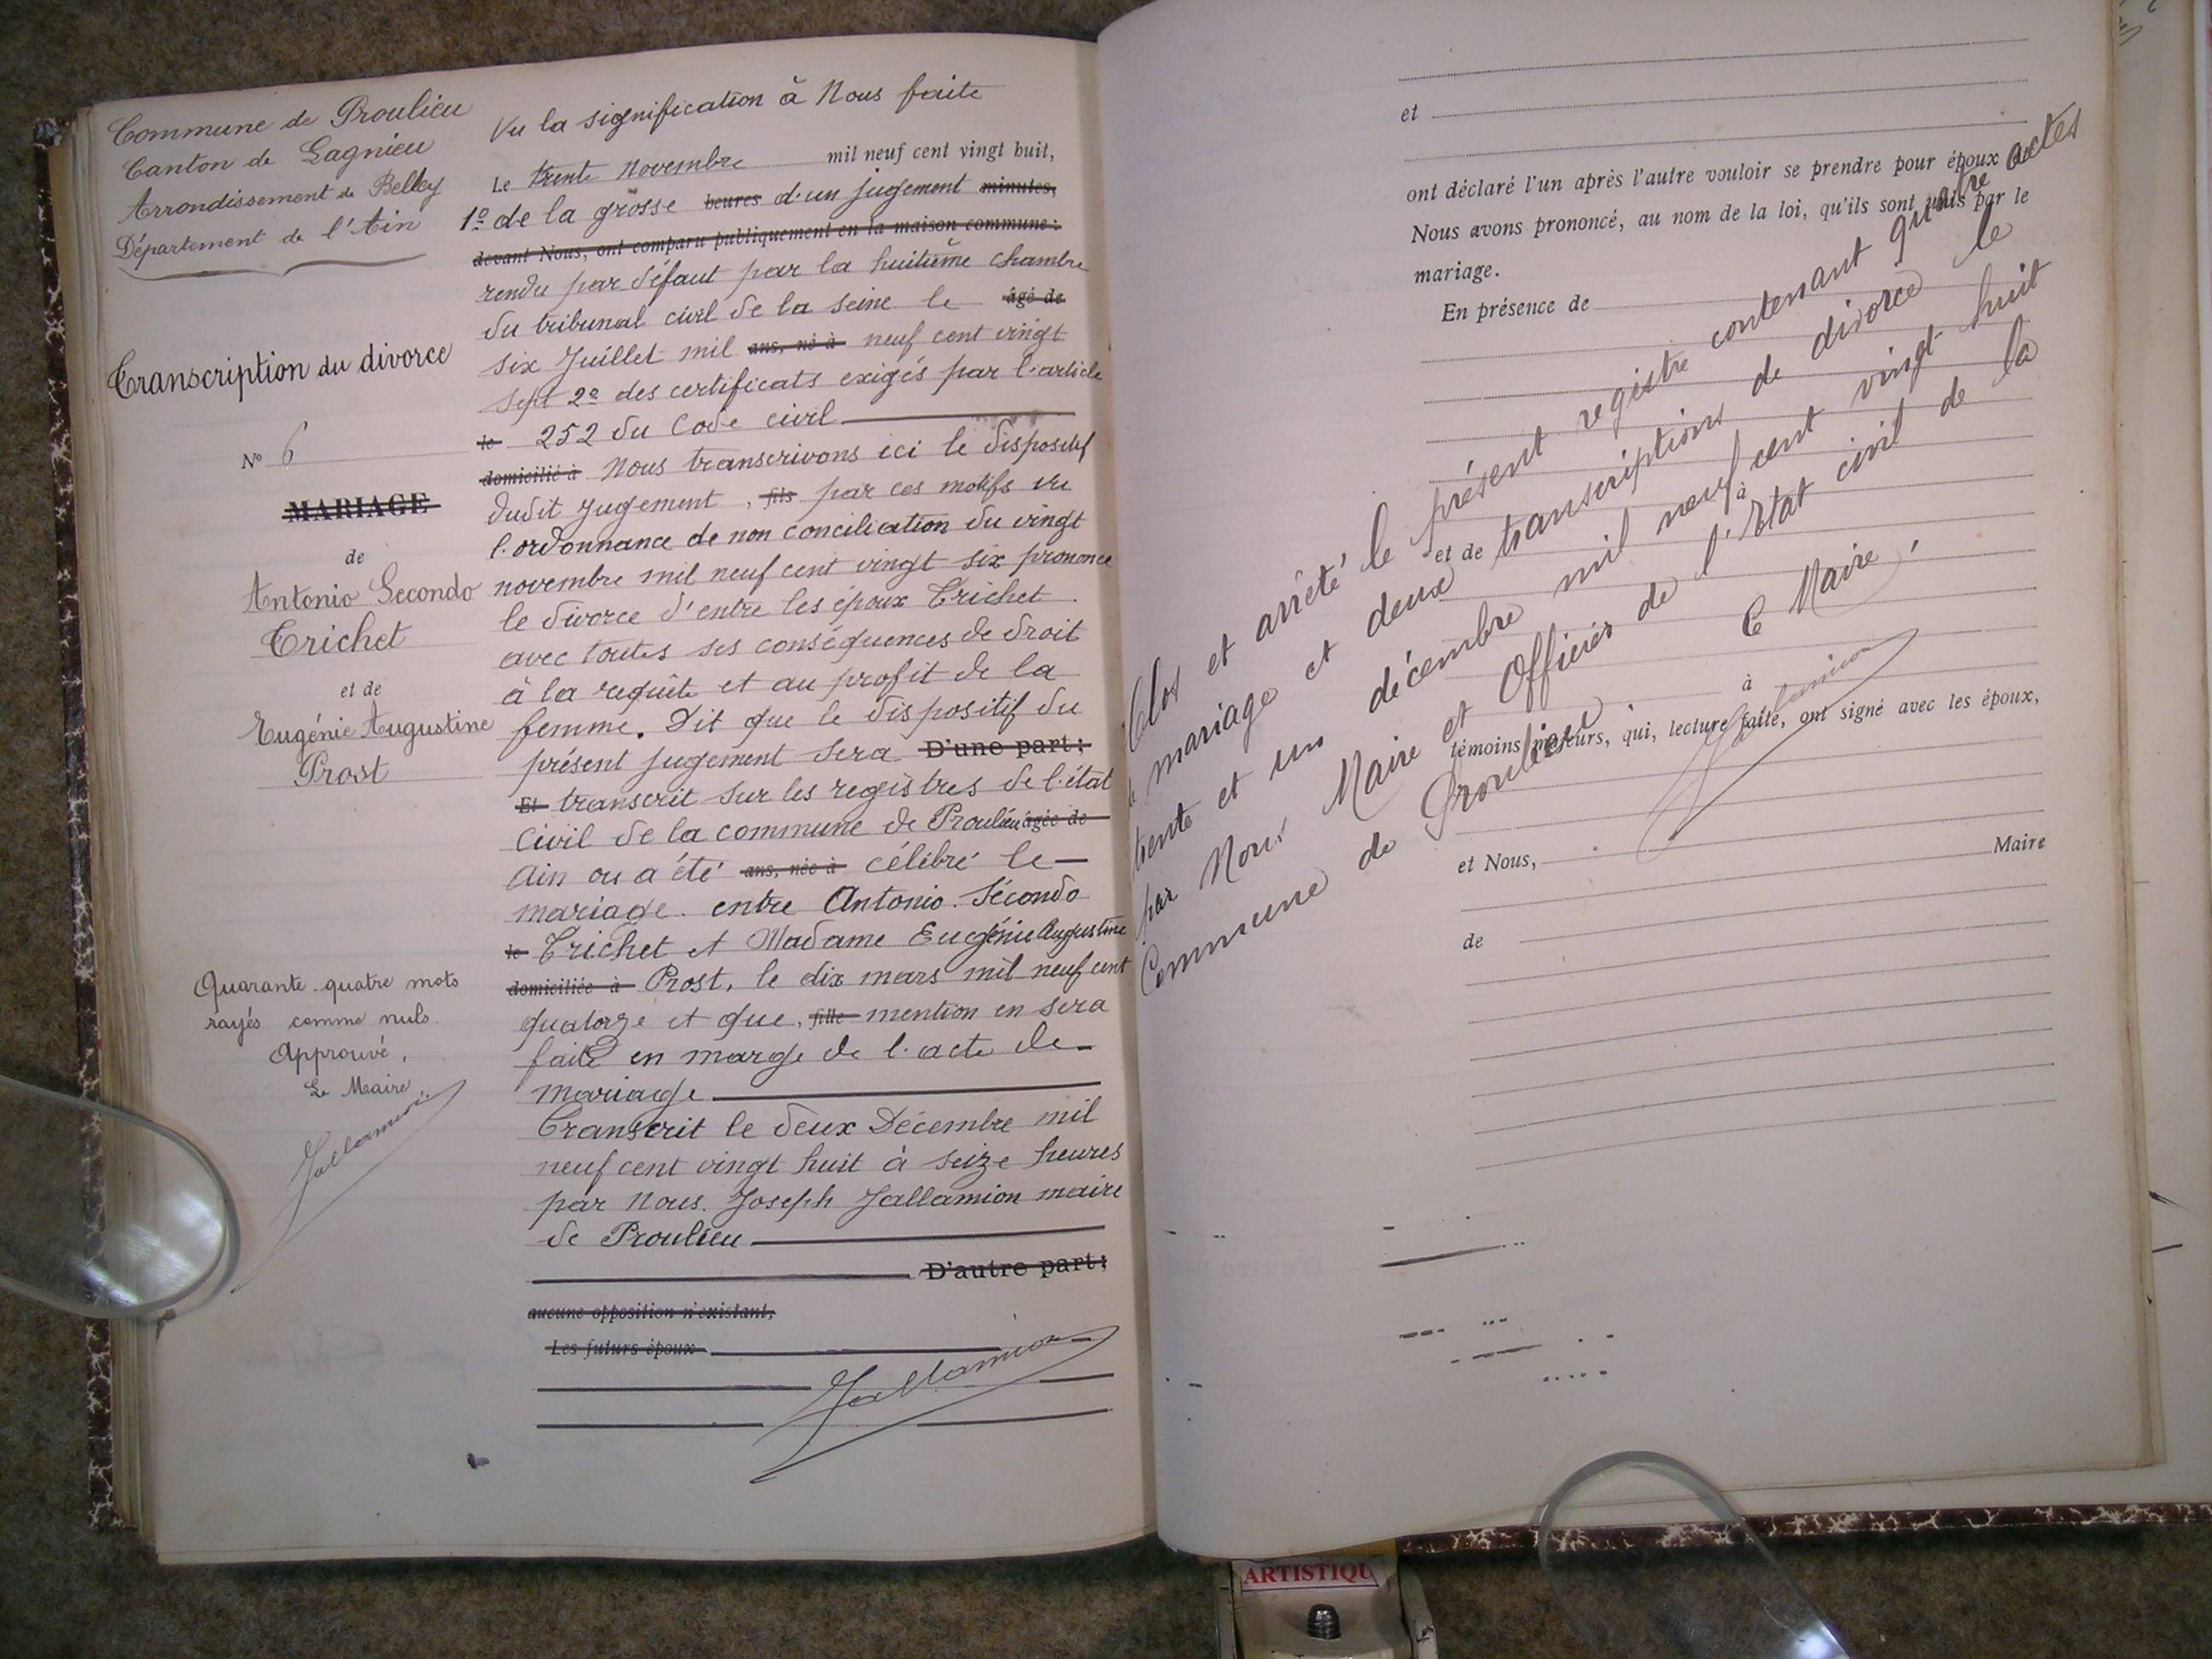 Commune de Proulieu
Canton de Lagnieu
Arrondissement de Belley
Département de l'Ain
Transcription du divorce
N° 6
MARIAGE
de
Antonio Secondo
Trichet
et de
Eugénie Augustine
Prost
Quarante quatre mots
rayés comme nuls.
Approuvé,
Le Maire,
Jallamion
Vu la signification à Nous faite
Le trente novembre mil neuf cent vingt huit,
1° de la grosse heures d'un jugement minutes,
devant Nous, ont comparu publiquement en la maison commune :
rendu par défaut par la huitième chambre
du tribunal civil de la seine le âgé de
six Juillet mil ans, né à neuf cent vingt
sept 2° des certificats exigés par l'article
le 252 du Code civil
domicilié à Nous transcrivons ici le dispositif
dudit jugement, fils par ces motifs vu
l'ordonnance de non conciliation du vingt
novembre mil neuf cent vingt six prononce
le divorce d'entre les époux Trichet
avec toutes ses conséquences de droit
à la requête et au profit de la
femme. Dit que le dispositif du
présent jugement sera D'une part ;
Et transcrit sur les registres de l'état
civil de la commune de Proulieu âgée de
Ain ou a été ans, née à célébré le
mariage entre Antonio Sécondo
le Trichet et Madame Eugénie Augustine
domiciliée à Prost, le dix mars mil neuf cent
quatorze et que, fille mention en sera
faite en marge de l'acte de
mariage
Transcrit le deux Décembre mil
neuf cent vingt huit à seize heures
par Nous. Joseph Jallamion maire
de Proulieu
D'autre part ;
aucune opposition n'existant,
Les futurs époux
Jallamion
et
ont déclaré l'un après l'autre vouloir se prendre pour époux
Nous avons prononcé, au nom de la loi, qu'ils sont unis par le
mariage.
En présence de
et de
à
à
témoins majeurs, qui, lecture faite, ont signé avec les époux,
et Nous, Maire
de
Clos et arrêté le présent registre contenant quatre actes
de mariage et deux transcriptions de divorce le
trente et un décembre mil neuf cent vingt huit
par Nous Maire et Officier de l'Etat civil de la
Commune de Proulieu.
Le Maire,
Jallamion
ARTISTIQU